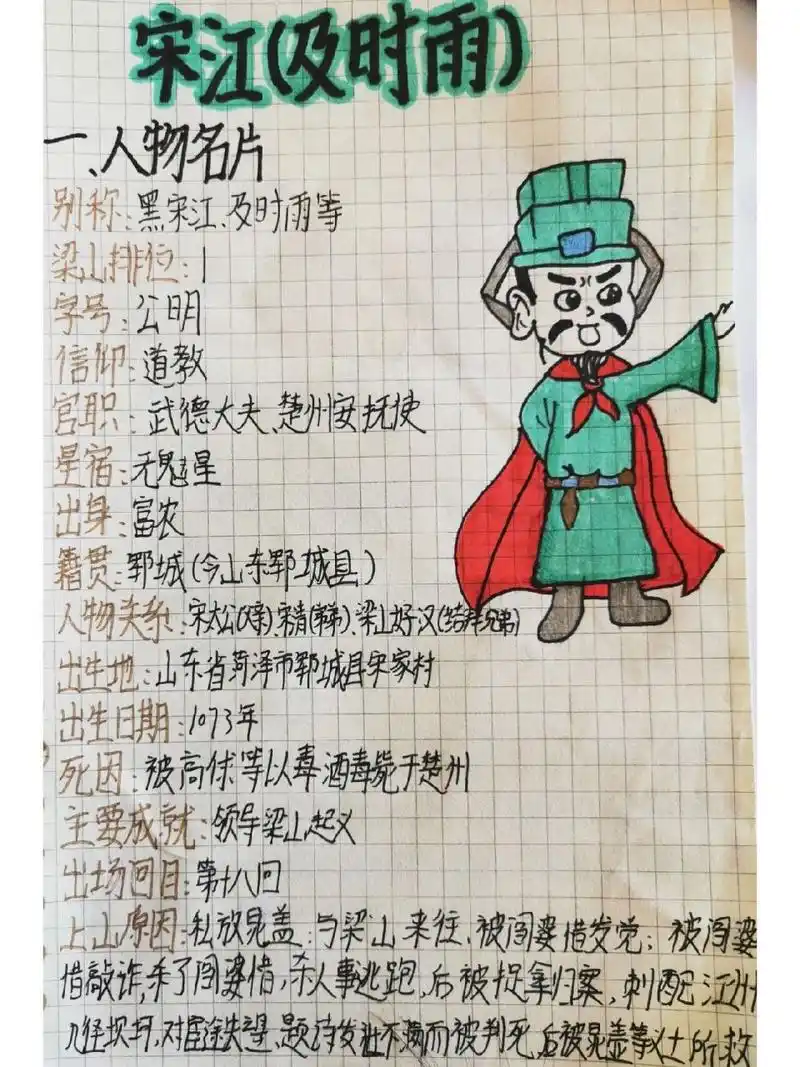 宋江(及时雨)
一、人物名片
别称:黑宋江、及时雨等
梁山排位:1
字号:公明
信仰:道教
官职:武德大夫、楚州安抚使
星宿:天魁星
出身:富农
籍贯:郓城(今山东郓城县)
人物关系:宋太公(父亲)、宋清(弟弟)、梁山好汉(结拜兄弟)
出生地:山东省菏泽市郓城县宋家村
出生日期:1073年
死因:被高俅等以毒酒毒毙于楚州
主要成就:领导梁山起义
出场回目:第十八回
上山原因:私放晁盖;与梁山来往,被阎婆惜发觉;被阎婆
惜敲诈,杀了阎婆惜,杀人事逃跑,后被捉拿归案,刺配江州
几经坎坷,对官途失望,题诗发壮不满而被判死,后被晁盖等义士所救